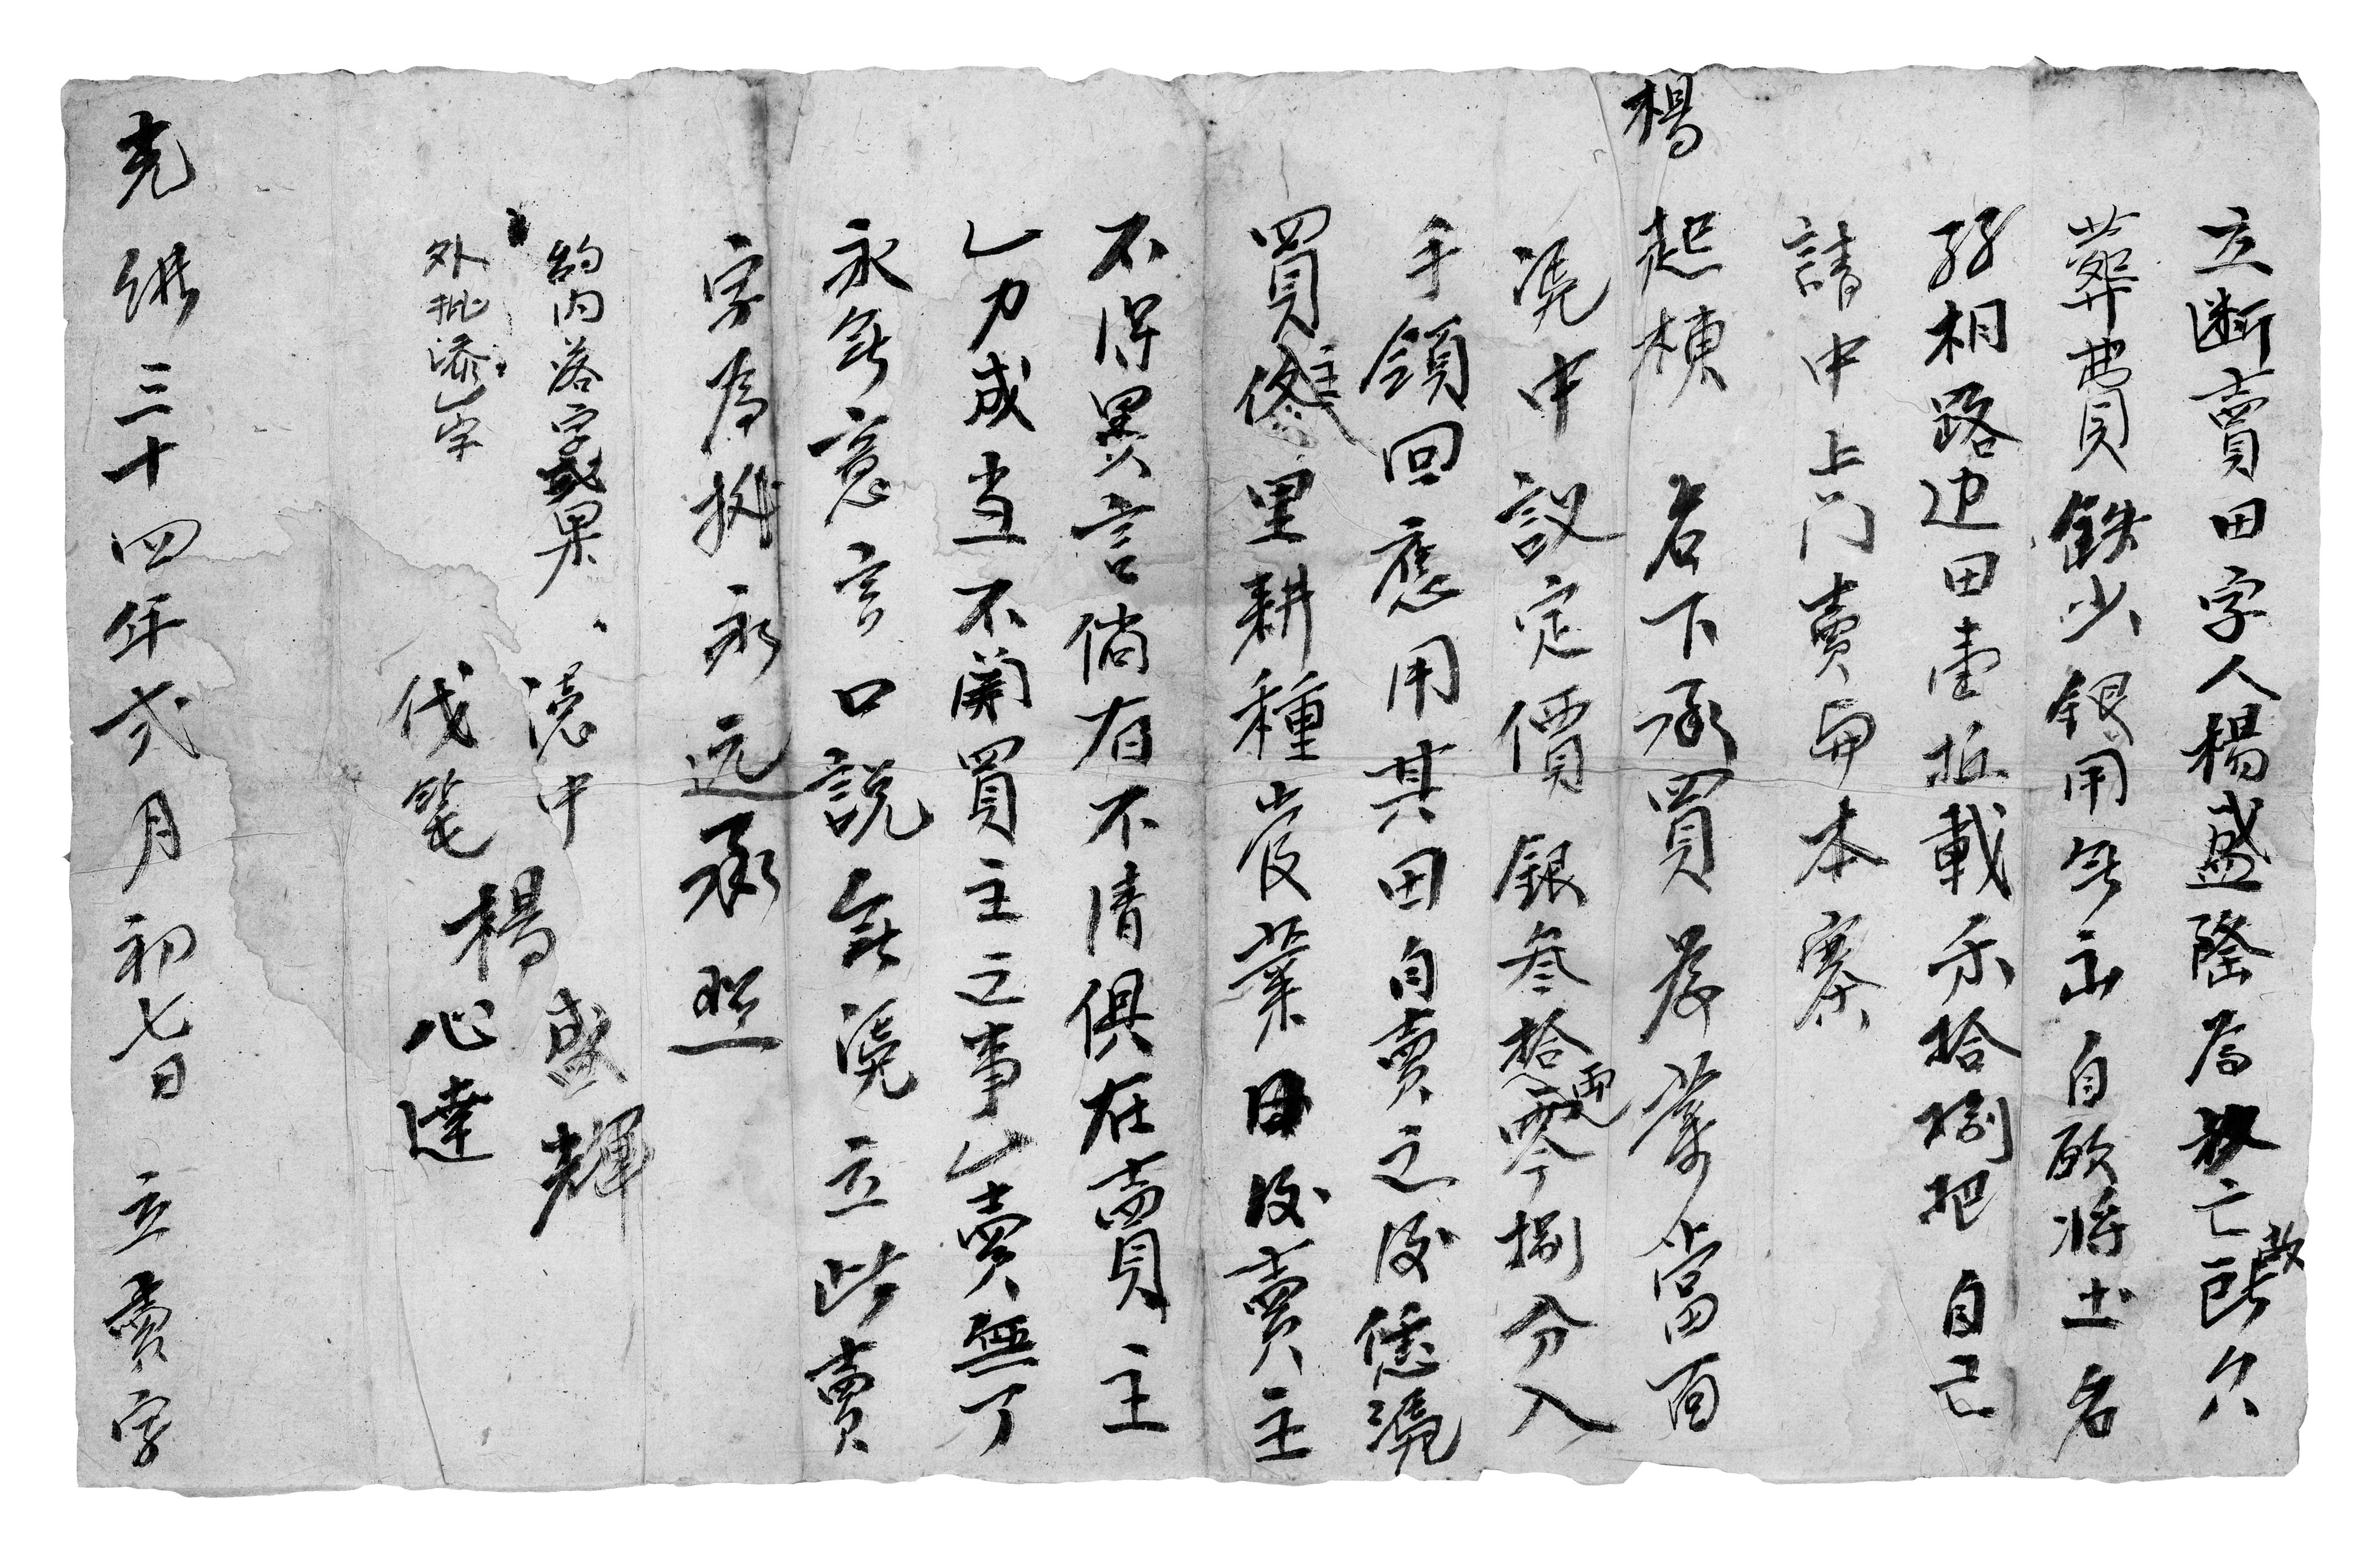 立断賣田字人楊盛隆為父亡故欠
葬費銖少銀用無出自願將土名
相路边田壹坵載禾拾捌把自己
請中上門賣與本寨
楊起棟名下承買為業當面
凴中议定價銀叁拾兩零捌分入
手領回應用其田自賣之後恁凴
買主修里耕種管業日後賣主
不得異言倘有不清俱在賣主
一力成当不関買主之事一賣無了
永無意言口説無凴立此賣
字為拠永远承照
約内落字或
外批添一字
憑中 楊盛輝
代筆 楊心達
光緒三十四年弍月初七日 立賣字